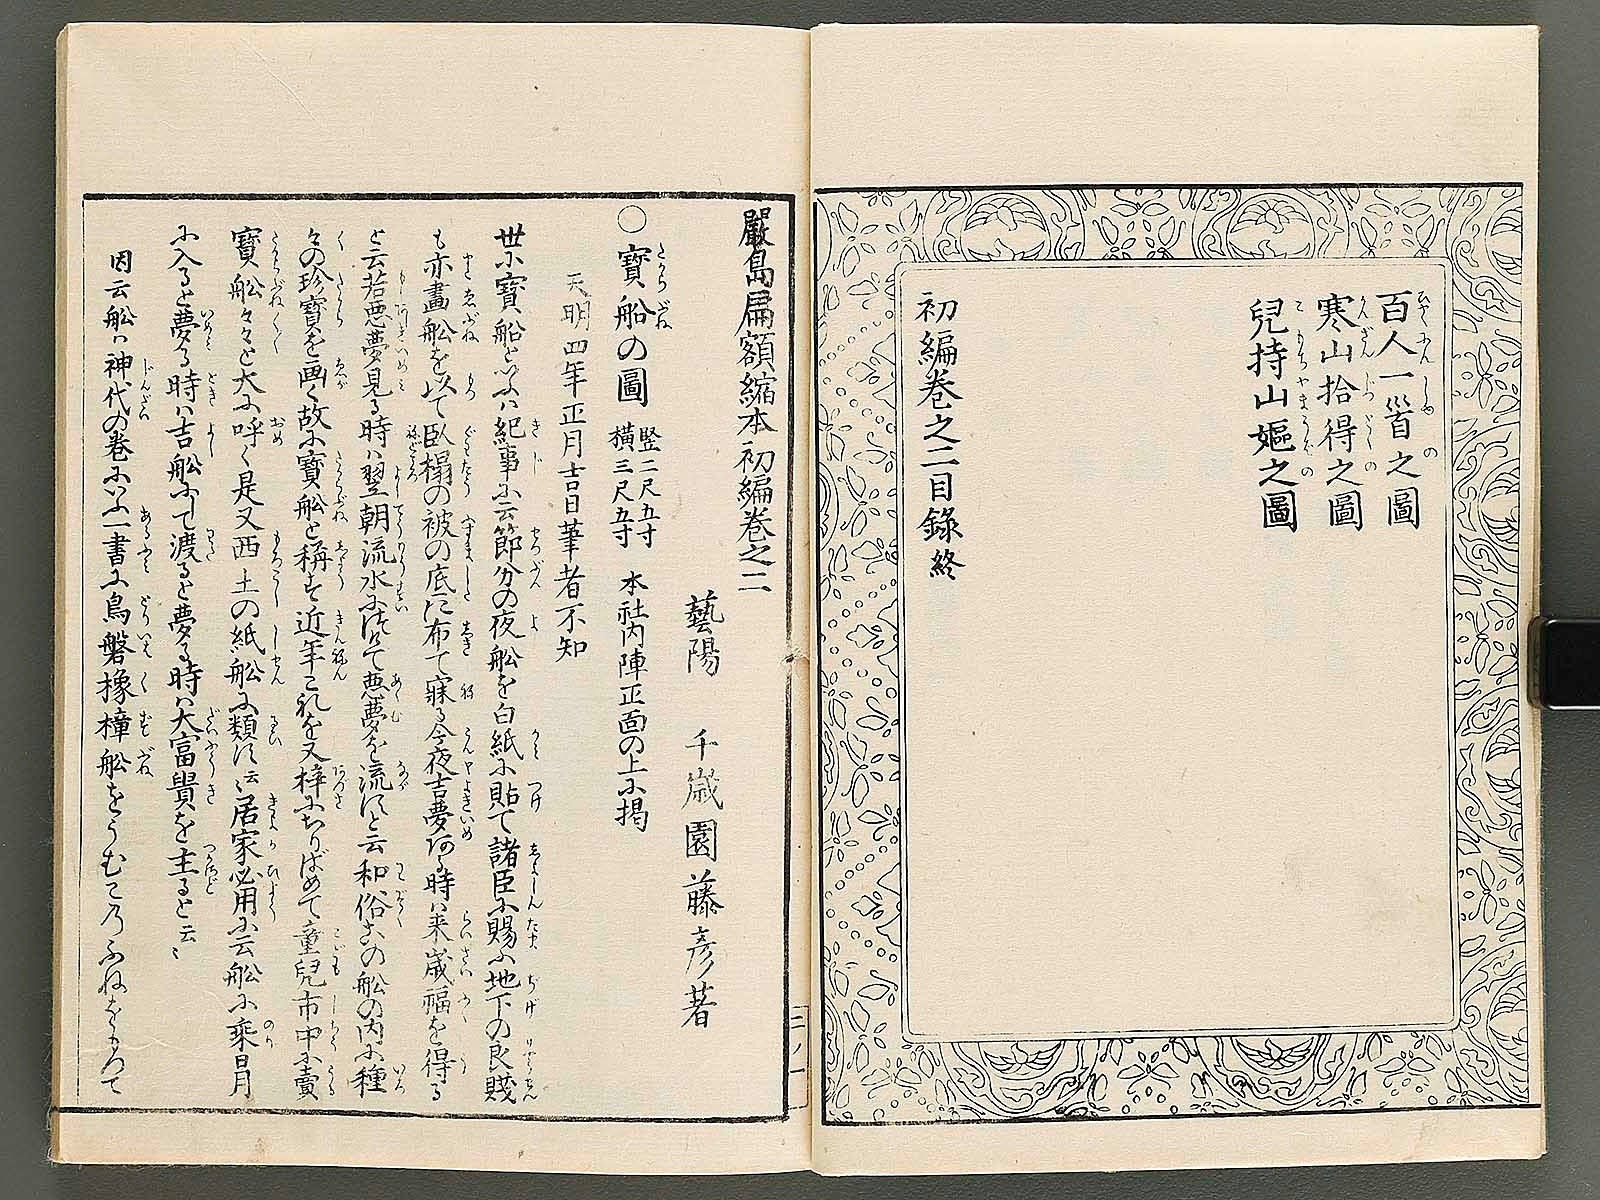 百人一首之圖
寒山拾得之圖
兒持山嫗之圖
初編卷之二目錄終
嚴島扁額縮本初編卷之二
藝陽 千歲園藤彥著
○寶船の圖 竪二尺五寸 橫三尺五寸 本社內陣正面の上に揭
天明四年正月吉日筆者不知
世に寶船といふハ紀事に云節分の夜舩を白紙に貼て諸臣に賜ふ地下の良賤
も亦畫舩を以て臥榻の被の底に布て寐る今夜吉夢ある時ハ来歲福を得る
と云若悪夢見る時ハ翌朝流水に流して悪夢を流すと云和俗この舩の內に種
々の珍寶を画く故に寶舩と稱す近年これを又梓にちりばめて童兒市中に賣
寶舩々々と大に呼く是又西土の紙舩に類す云〻居家必用に云舩に乘日月
に入ると夢る時ハ吉舩にて渡ると夢る時ハ大富貴を主ると云〻
因云舩ハ神代の卷にいふ一書に鳥磐櫲樟舩をうむこのふねをもつて
二ノ一